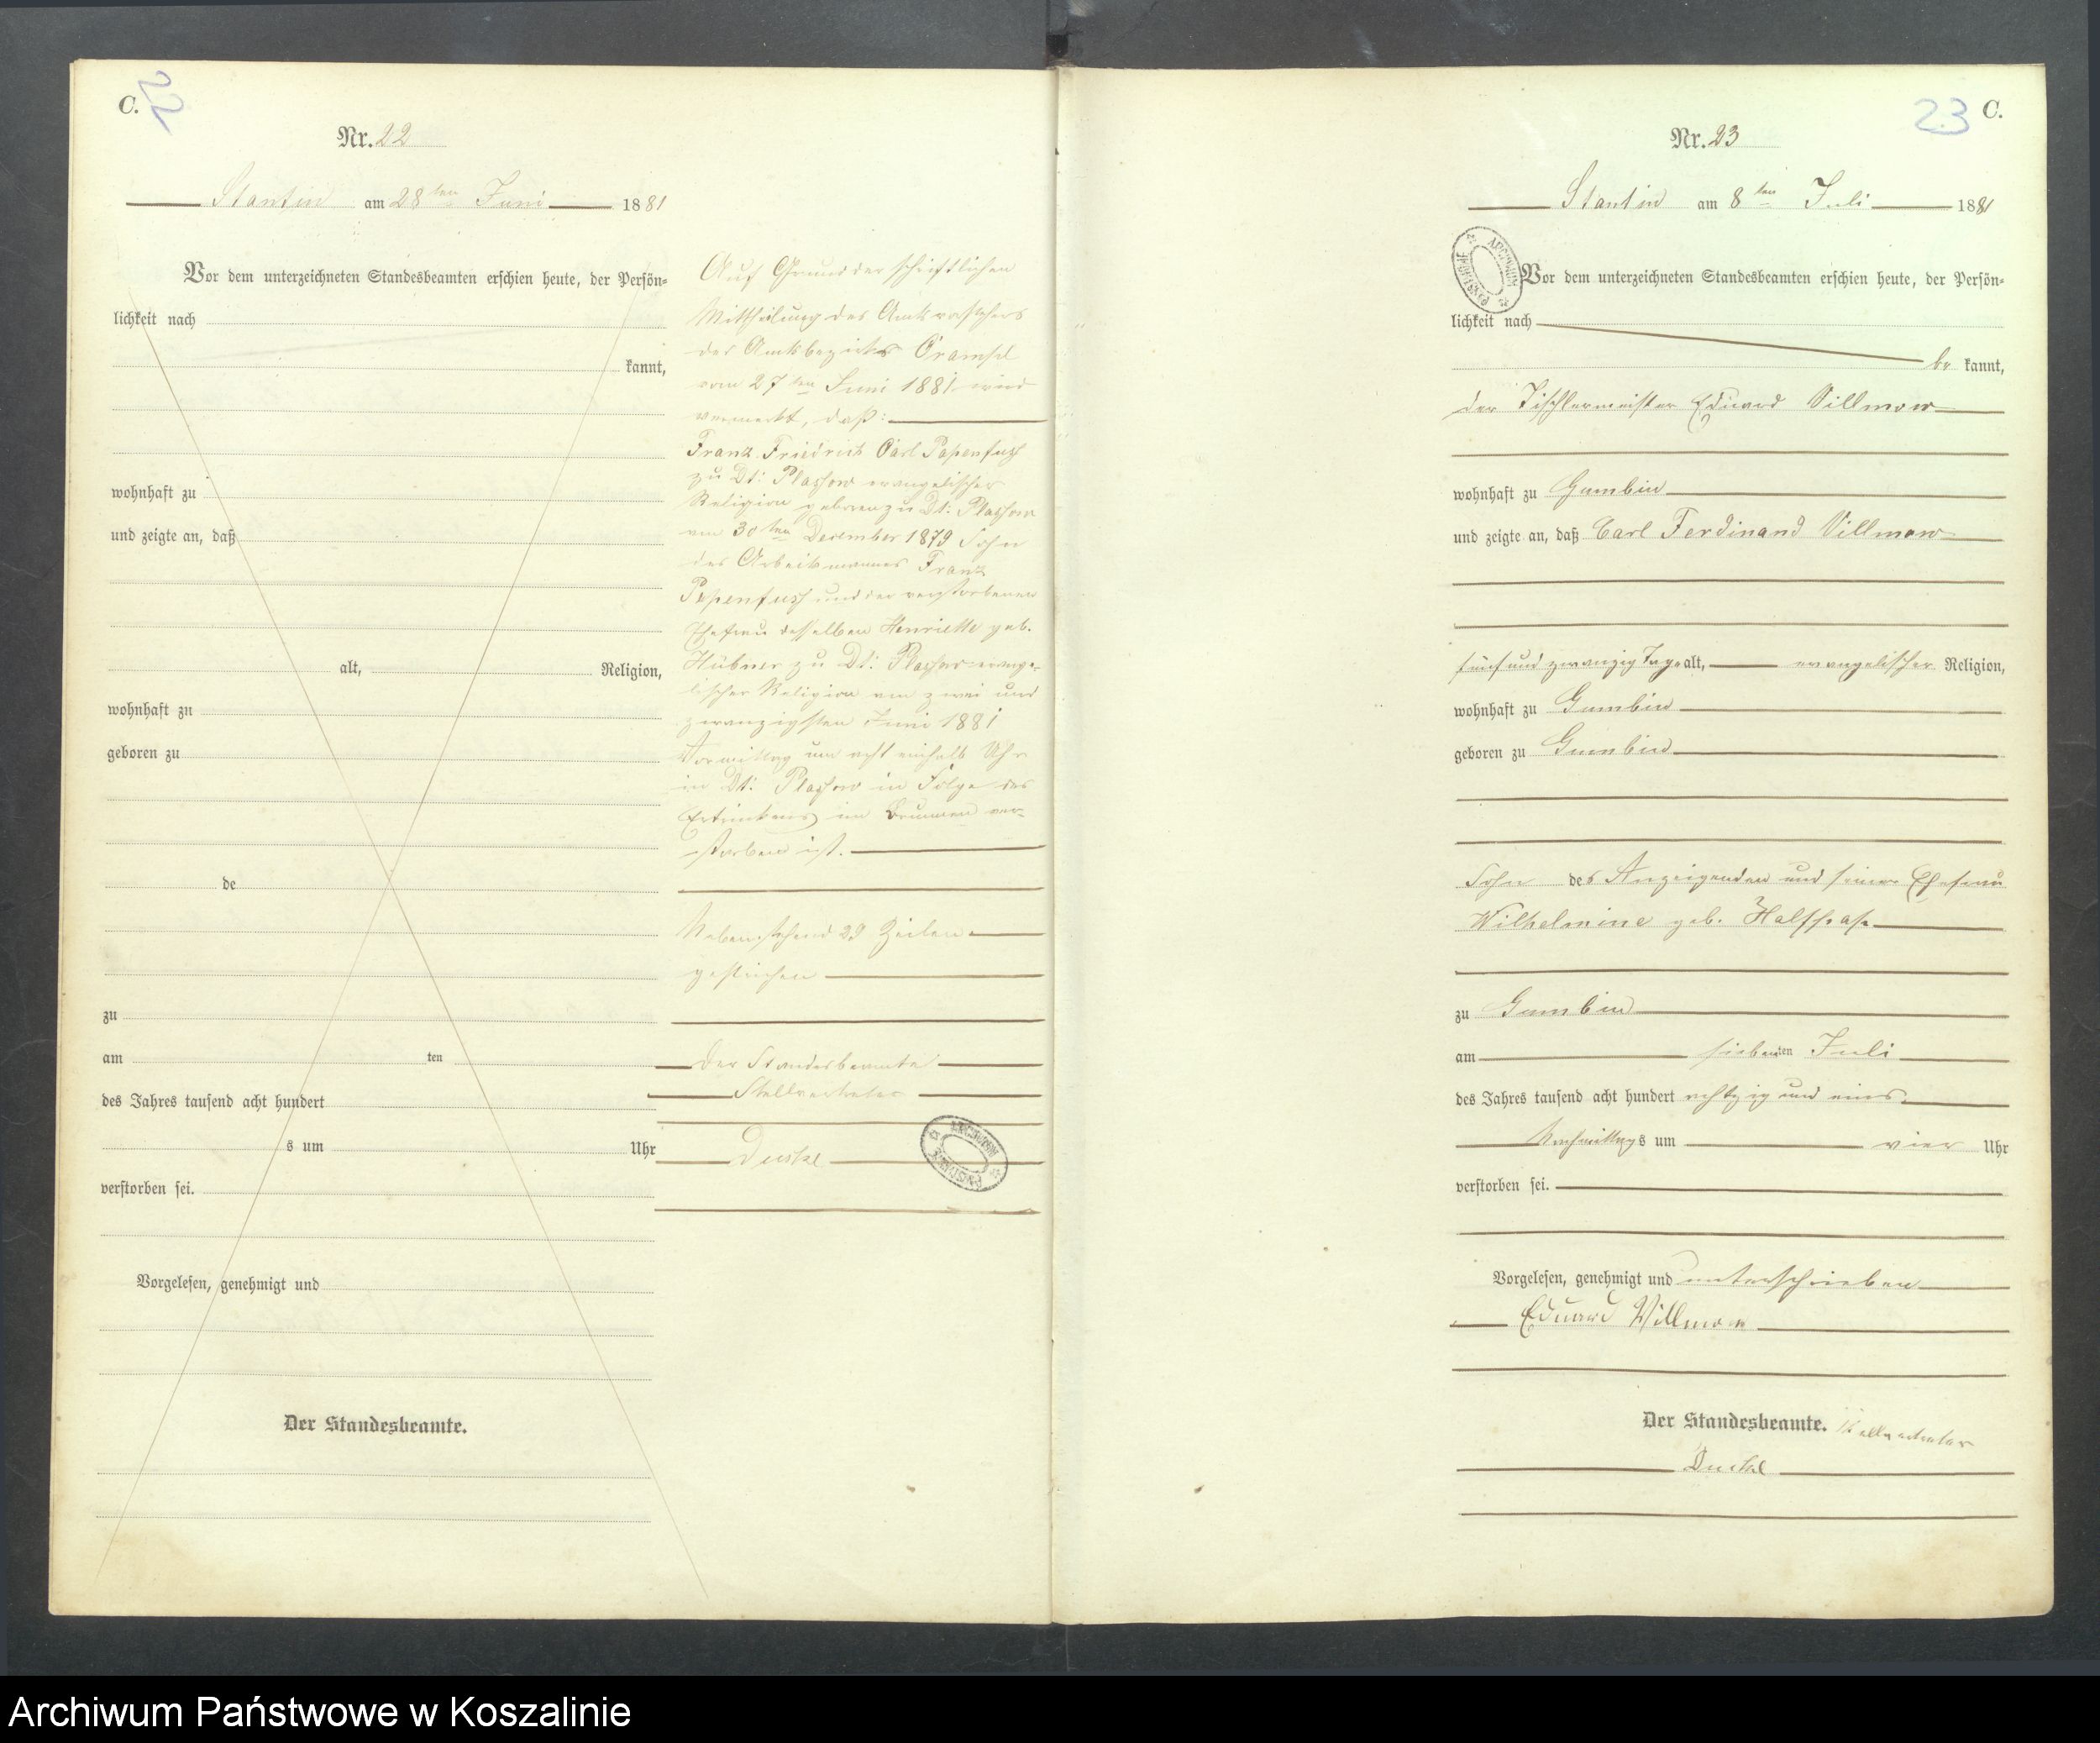 C.
22
Nr. 22
Stantin am 28ten Juni 1881
Vor dem unterzeichneten Standesbeamten erschien heute, der Persön=
lichkeit nach
kannt,
wohnhaft zu
und zeigte an, daß
alt, Religion,
wohnhaft zu
geboren zu
de
zu
am ten
des Jahres tausend acht hundert
s um Uhr
verstorben sei.
Vorgelesen, genehmigt und
Der Standesbeamte.
Auf Grund der schriftlichen
Mittheilung des Amtsvorstehers
des Amtsbezirks
vom 27ten Juni 1881 wird
vermerkt, daß:
Franz Friedrich Carl Papenfuß
zu Dt: Plassow evangelischer
Religion geboren zu Dt: Plassow
am 30ten Dezember 1879 Sohn
des Arbeitsmannes Franz
Papenfuß und der verstorbenen
Ehefrau desselben Henriette geb.
Hübner zu Dt: Plassow evange-
lischer Religion am zwei und
zwanzigsten Juni 1881
Vormittag um acht einhalb Uhr
in Dt: Plassow in Folge des
Ertrinkens im Brunnen ver-
storben ist.
Nebenstehend 29 Zeilen
gestrichen
Der Standesbeamte
Stellvertreter
ARCHIWUM PAŃSTWOWE
23
C.
Nr. 23
Stantin am 8ten Juli 1881
ARCHIWUM PAŃSTWOWE
Vor dem unterzeichneten Standesbeamten erschien heute, der Persön=
lichkeit nach
be kannt,
der Tischlermeister Eduard Villmow
wohnhaft zu Gumbin
und zeigte an, daß Carl Ferdinand Villmow
fünf und zwanzig Tage alt, evangelischer Religion,
wohnhaft zu Gumbin
geboren zu Gumbin
Sohn des Anzeigenden und seiner Ehefrau
Wilhelmine geb.
zu Gumbin
am siebenten Juli
des Jahres tausend acht hundert achtzig und eins
Nachmittags um vier Uhr
verstorben sei.
Vorgelesen, genehmigt und unterschrieben
Eduard Villmow
Der Standesbeamte. Stellvertreter
Archiwum Państwowe w Koszalinie